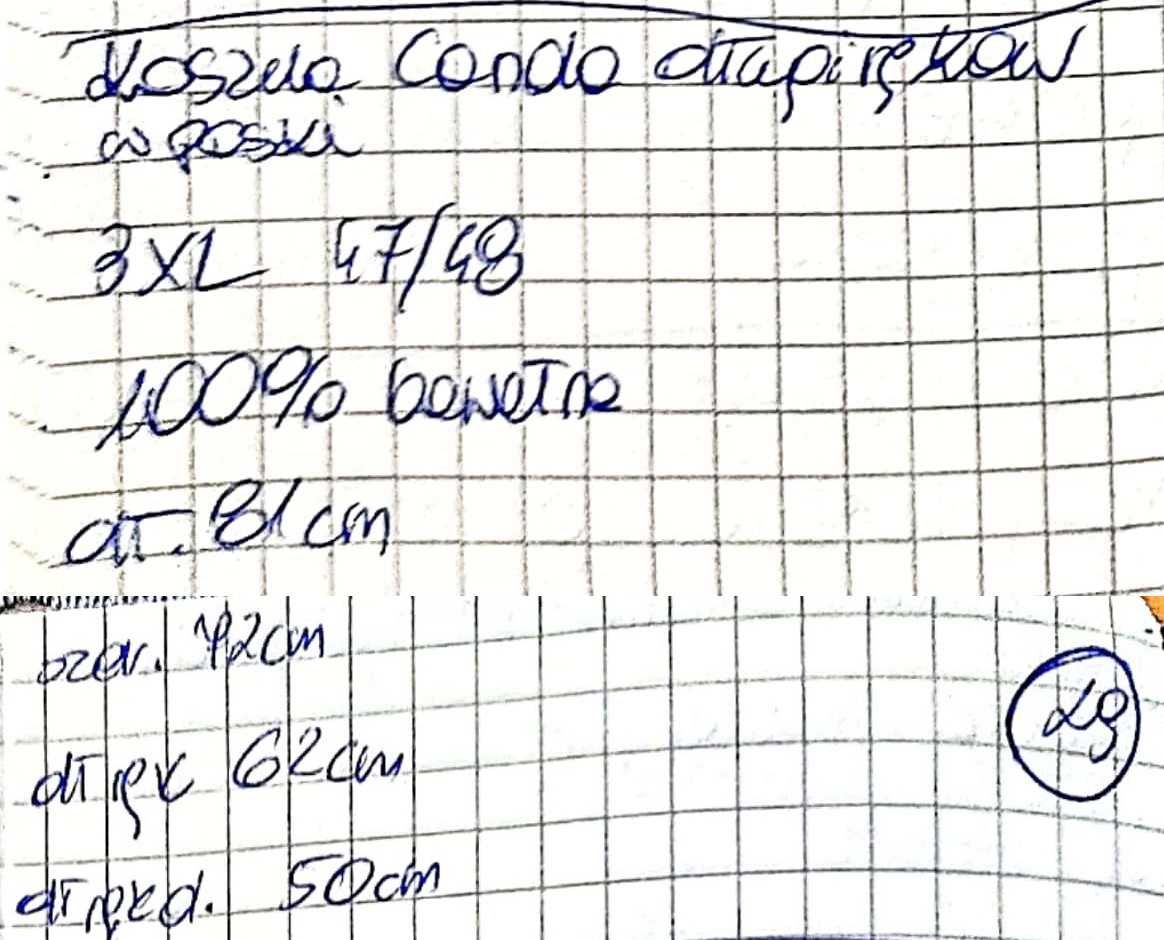 Koszula Conda dł rękaw
w paski
3XL 47/48
100% bawełna
dł. 81 cm
szer. 72cm
dł ręk 62cm
dł ręk d. 50cm